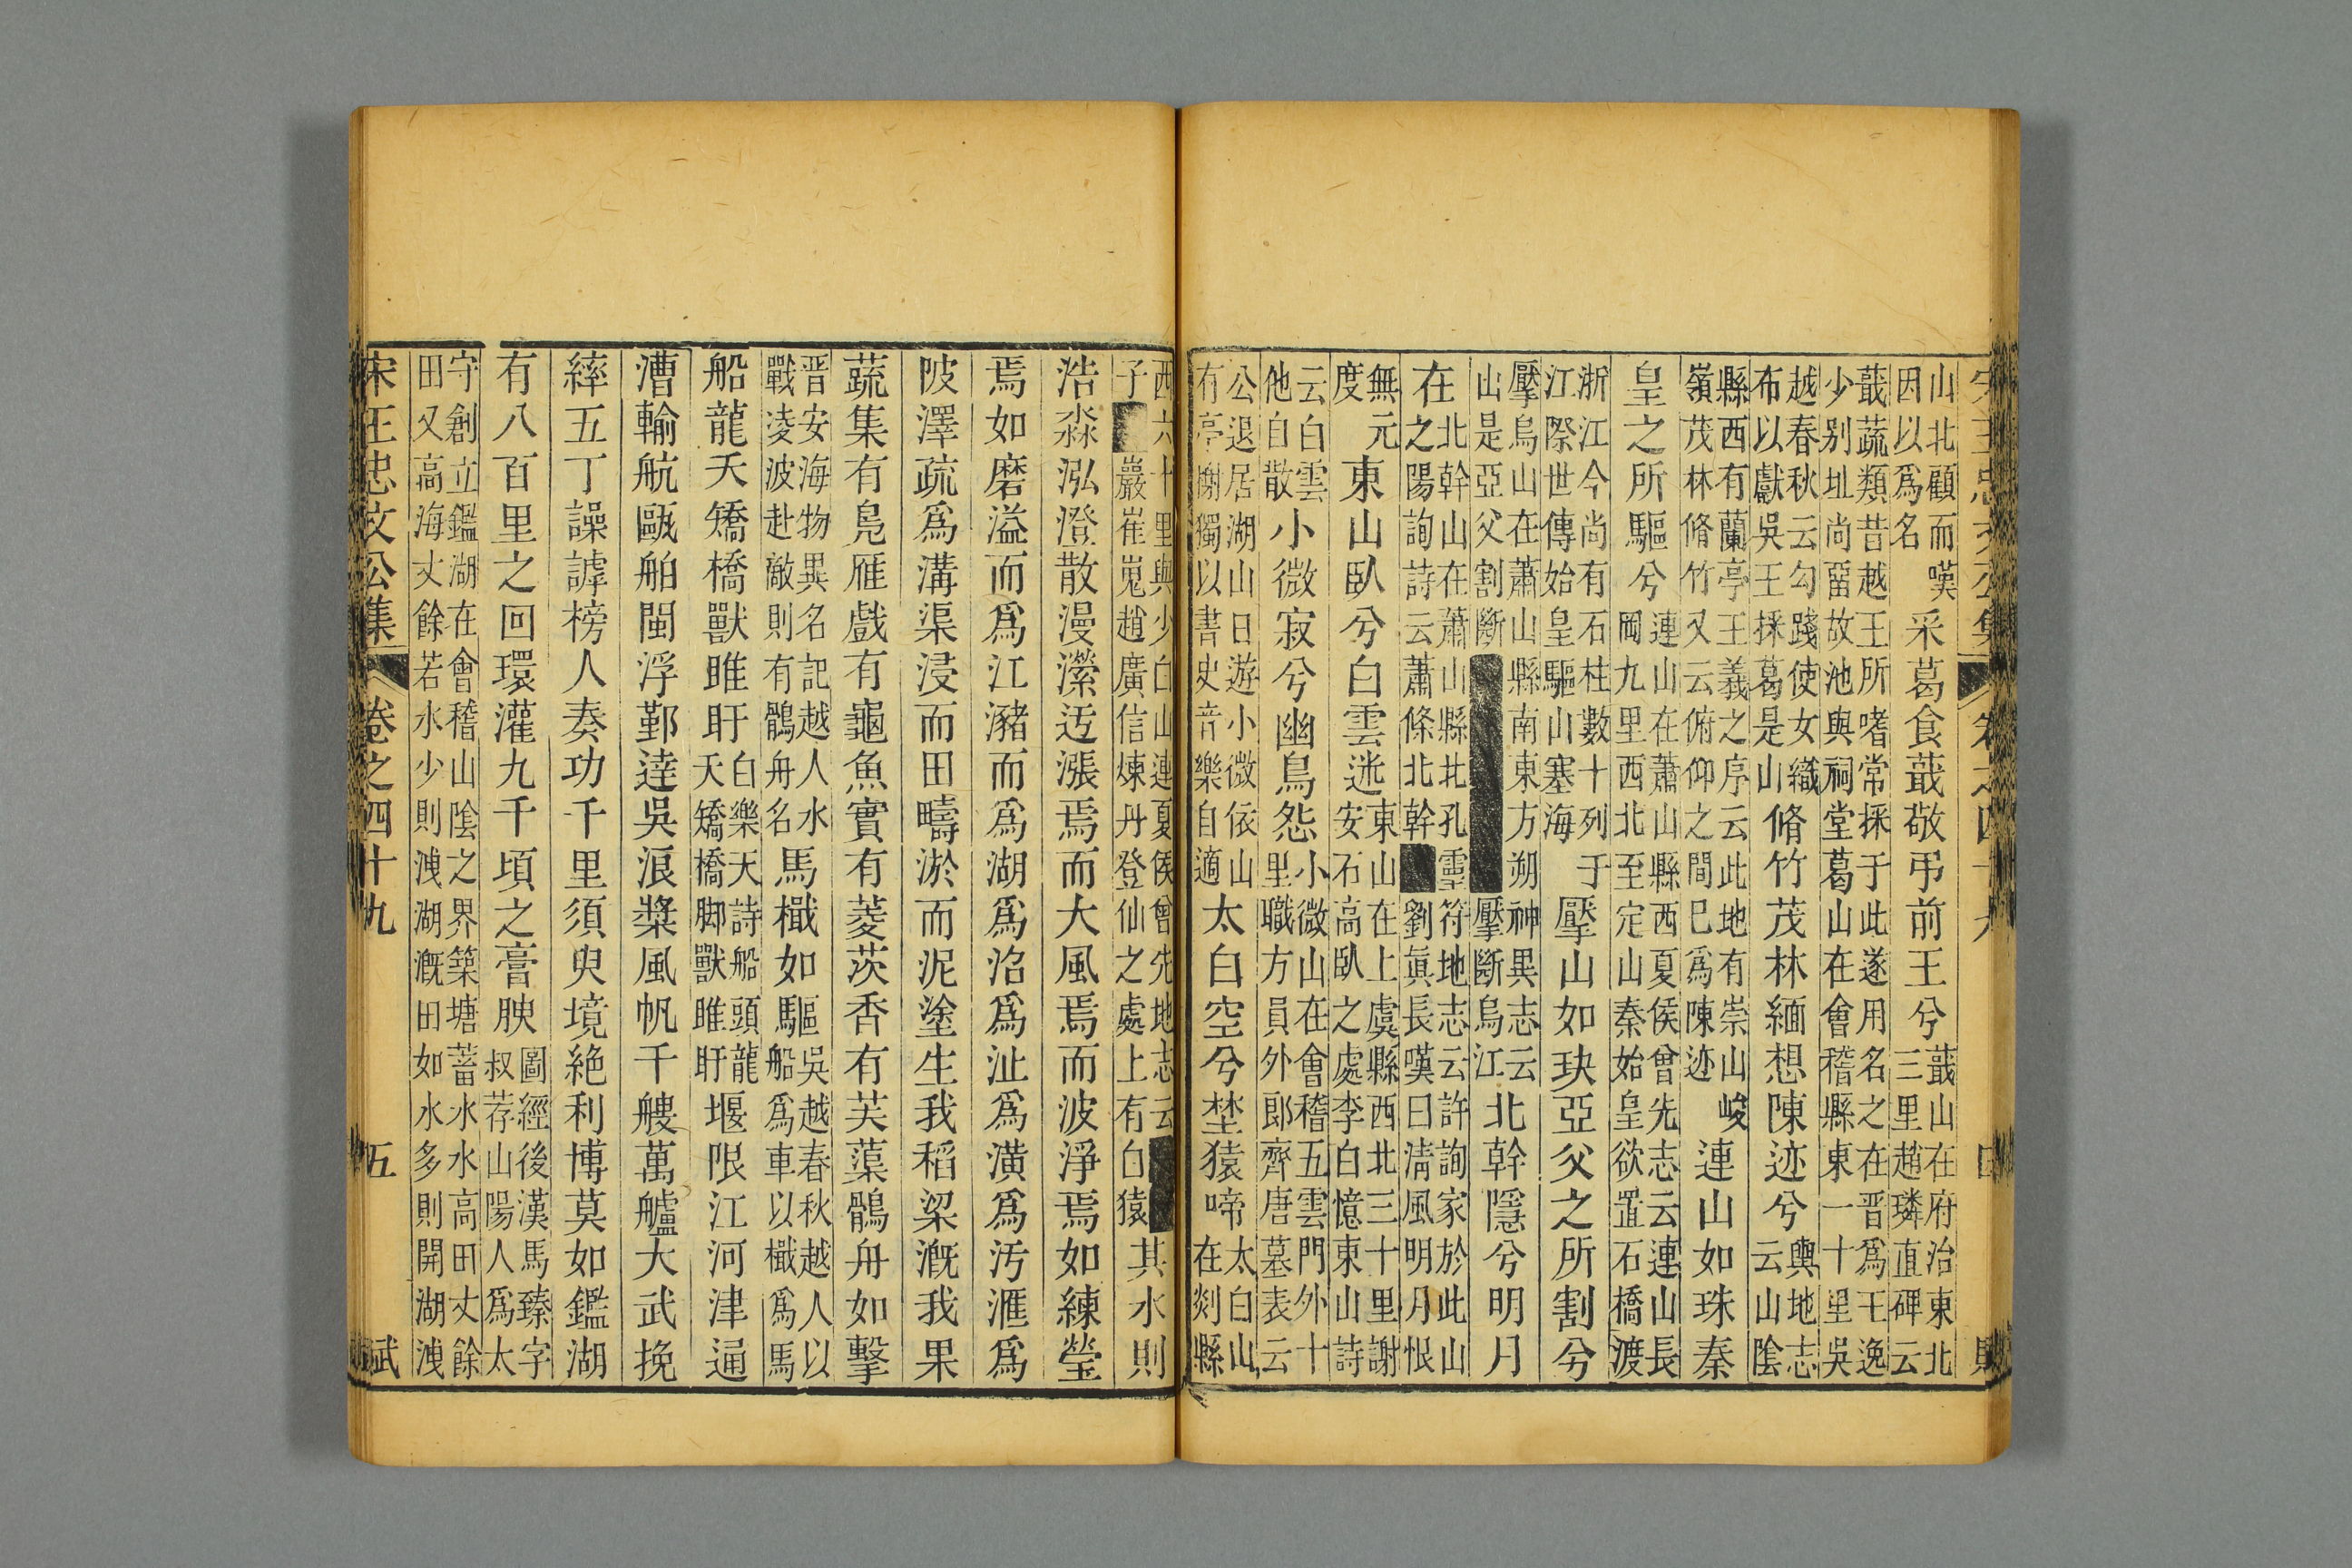 宋王忠文公集 卷之四十九 四
山北顧而嘆
因以爲名
采葛食蕺敬弔前王兮
蕺山在府治東北
三里趙璘直碑云
蕺蔬類昔越王所嗜常採于此遂用名之在晋爲王逸
少别址尚畱故池與祠堂葛山在會稽縣東一十里吳
越春秋云勾踐使女織
布以獻吳王採葛是山
脩竹茂林緬想陳迹兮
輿地志
云山陰
縣西有蘭亭王羲之序云此地有崇山峻
嶺茂林脩竹又云俯仰之間巳爲陳迹
連山如珠秦
皇之所驅兮
連山在蕭山縣西夏侯曾先志云連山長
岡九里西北至定山秦始皇欲置石橋渡
浙江今尚有石柱數十列于
江際世傳始皇驅山塞海
壓山如玦亞父之所割兮
壓烏山在蕭山縣南東方朔神異志云
山是亞父割斷壓斷烏江
北幹隱兮明月
在
北幹山在蕭山縣北孔靈符地志云許詢家於此山
之陽詢詩云蕭條北幹劉眞長嘆曰淸風明月恨
無元
度
東山臥兮白雲迷
東山在上虞縣西北三十里謝
安石高臥之處李白憶東山詩
云白雲
他自散
小微寂兮幽鳥怨
小微山在會稽五雲門外十
里職方員外郎齊唐墓表云
公退居湖山日遊小微依山
有亭榭獨以書史音樂自適
太白空兮埜猿啼
太白山
在剡縣
西六十里與少白山連夏侯曾先地志云
子巖崔嵬趙廣信煉丹登仙之處上有白猿
其水則
浩淼泓澄散漫瀠迃漲焉而大風焉而波淨焉如練瑩
焉如磨溢而爲江瀦而爲湖爲沼爲沚爲潢爲汚滙爲
陂澤疏爲溝渠浸而田疇淤而泥塗生我稻粱漑我果
蔬集有鳧雁戲有龜魚實有菱茨香有芙蕖鷁舟如擊
晋安海物異名記越人水
戰凌波赴敵則有鷁舟名
馬檝如驅
吳越春秋越人以
船爲車以檝爲馬
船龍夭矯橋獸睢盱
白樂天詩船頭龍
夭矯橋脚獸睢盱
堰限江河津通
漕輸航甌舶閩浮鄞達吳浪槳風帆千艘萬艫大武挽
繂五丁譟謼榜人奏功千里須臾境絶利博莫如鑑湖
有八百里之回環灌九千頃之膏腴
圖經後漢馬臻字
叔荐山陽人爲太
守創立鑑湖在會稽山陰之界築塘蓄水水高田丈餘
田又高海丈餘若水少則洩湖漑田如水多則開湖洩
宋王忠文公集 卷之四十九 五 賦